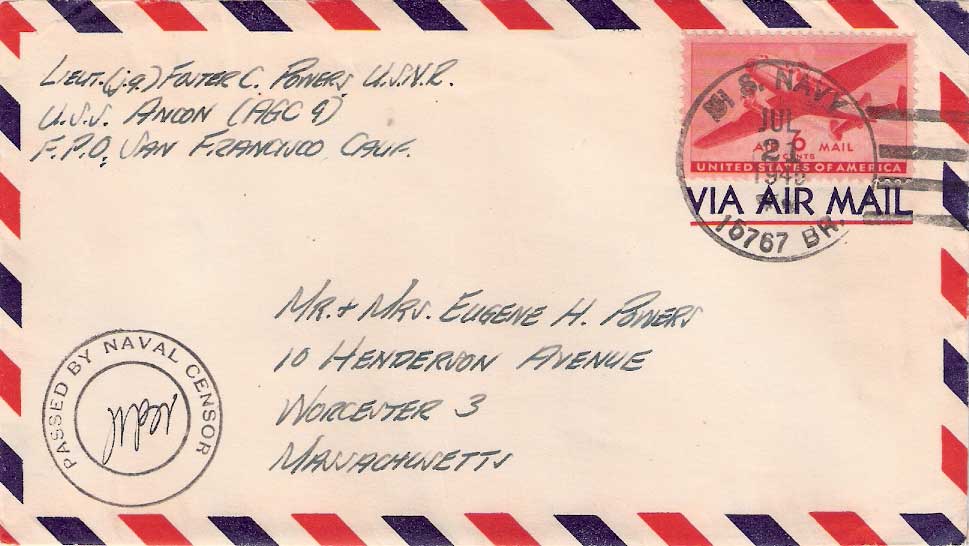 Lieut. (j.g.) Foster C. Powers U.S.N.R.
U.S.S. Ancon (AGC 4)
F.P.O. San Francisco, Calif.
U. S. NAVY
JUL
21
1945
15767 BR.
AIR 6 MAIL
CENTS
UNITED STATES OF AMERICA
VIA AIR MAIL
Mr. + Mrs. Eugene H. Powers
10 Henderson Avenue
Worcester 3
Massachusetts
PASSED BY NAVAL CENSOR